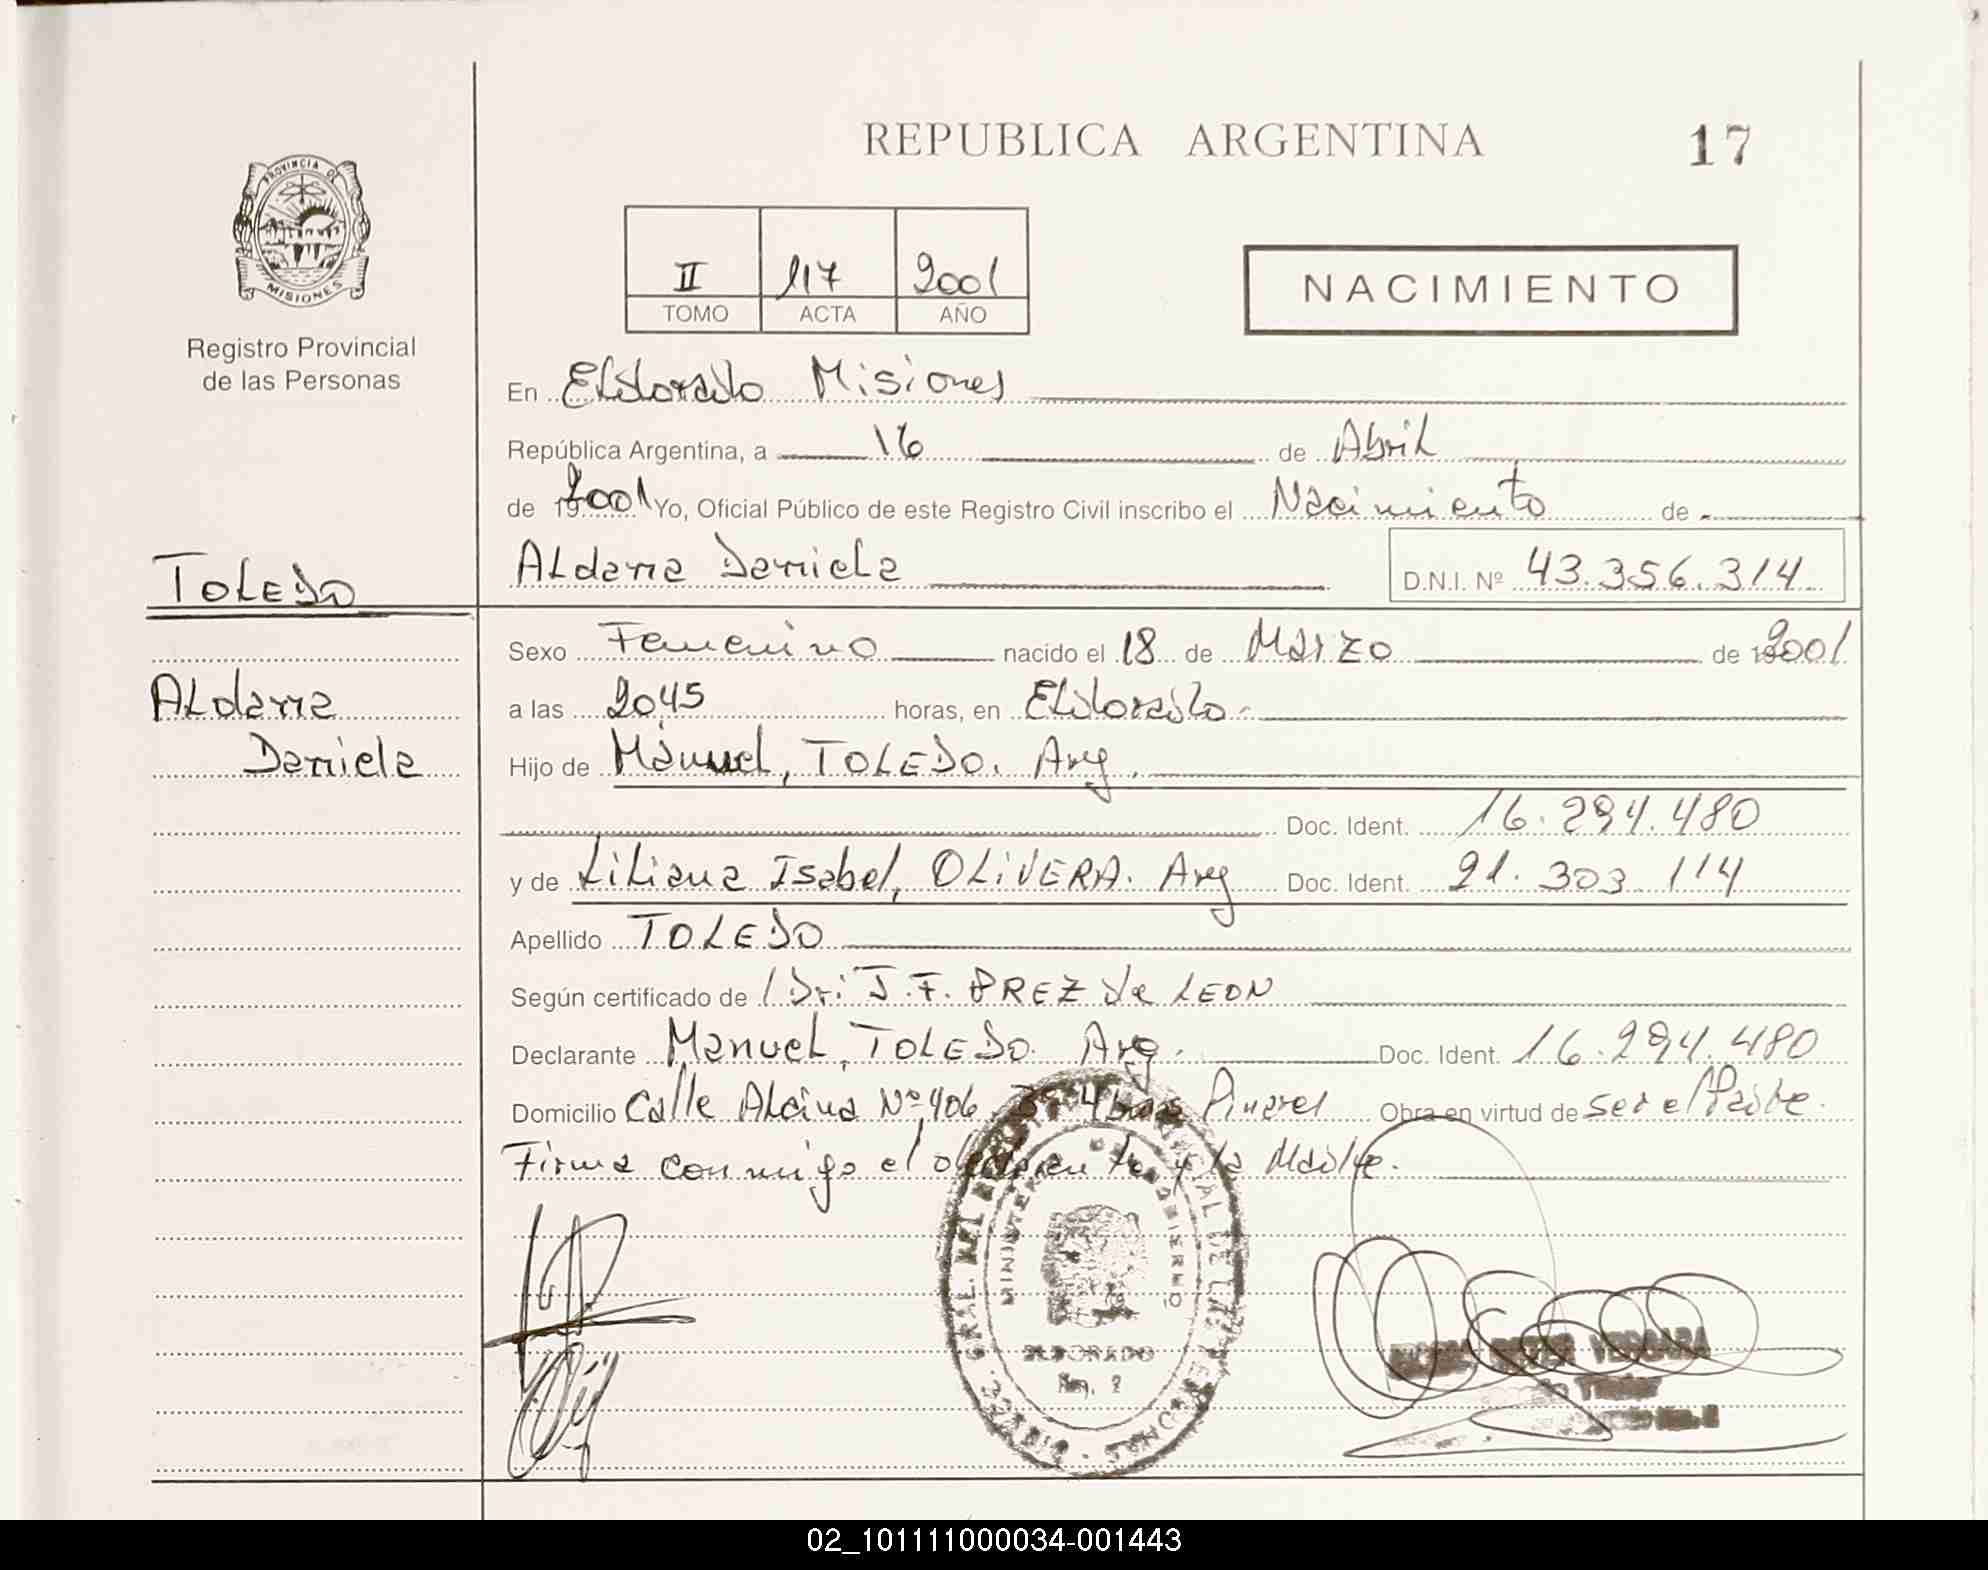 REPUBLICA ARGENTINA
17
PROVINCIA DE
MISIONES
Registro Provincial
de las Personas
II 117 2001
TOMO ACTA AÑO
NACIMIENTO
En Eldorado Misiones
República Argentina, a 16 de Abril
de 19 2001 Yo, Oficial Público de este Registro Civil inscribo el Nacimiento de
TOLEDO
Aldana Daniela D.N.I. Nº 43.356.314
Sexo Femenino nacido el 18 de Marzo de 2001
Aldana
a las 2045 horas, en Eldorado
Daniela
Hijo de Manuel, TOLEDO. Arg.
Doc. Ident. 16.294.480
y de Liliana Isabel, OLIVERA. Arg Doc. Ident. 21.303.114
Apellido TOLEDO
Según certificado de Dr: J.F. PREZ de LEON
Declarante Manuel, TOLEDO. Arg. Doc. Ident. 16.294.480
Domicilio Calle Alsina Nº 406 Pinares Obra en virtud de ser el Padre.
Firma conmigo el declarante y la Madre.
MINISTERIO DE GOBIERNO
ELDORADO
VERGARA
Titular
02_101111000034-001443